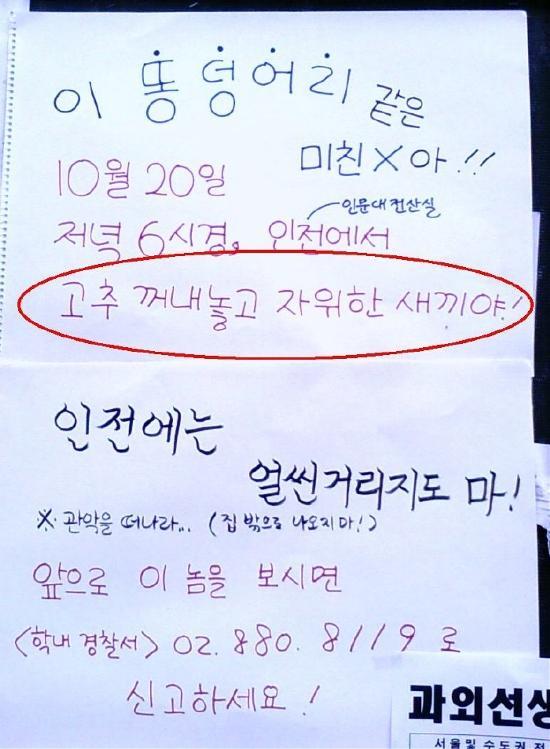 이 똥덩어리 같은
미친 X아!!
10월 20일
인문대 전산실
저녁 6시경, 인전에서
고추 꺼내놓고 자위한 새끼야!
인전에는
얼씬거리지도 마!
※ 관악을 떠나라... (집 밖으로 나오지마!)
앞으로 이 놈을 보시면
<학내 경찰서> 02. 880. 8119 로
신고하세요!
과외선생
서울 및 수도권